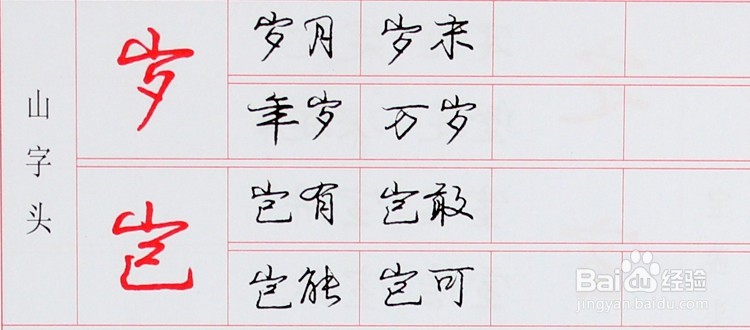 山字头
岁
岁月 岁末
年岁 万岁
岂
岂有 岂敢
岂能 岂可
Baidu经验
jingyan.baidu.com